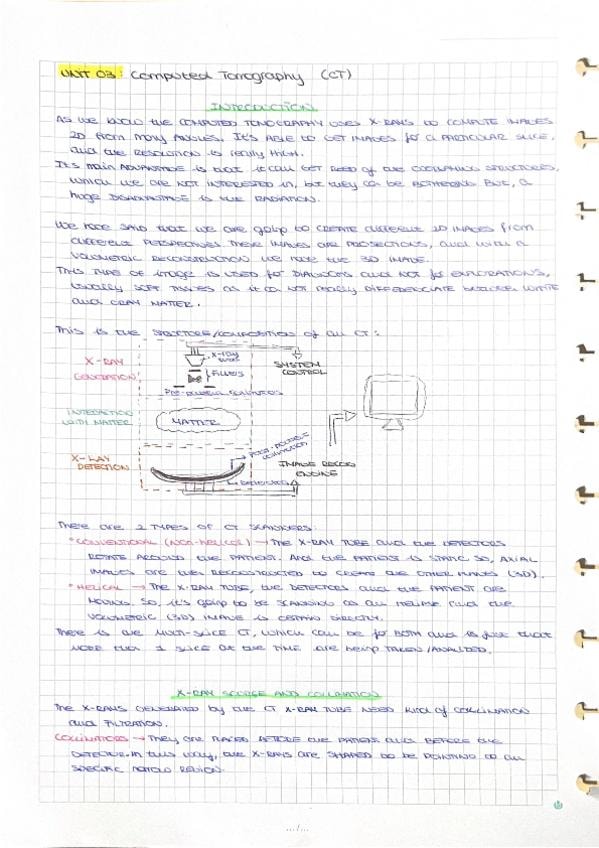 UNIT 03: Computed Tomography (CT)
INTRODUCTION
As we know the COMPUTED TOMOGRAPHY uses X-RAYS to COMPUTE IMAGES
2D FROM MANY ANGLES. It's ABLE to GET IMAGES for a PARTICULAR SLICE,
and the RESOLUTION is really high.
Its main ADVANTAGE is that it can GET REED of the OVERLAPPING STRUCTURES,
which we are NOT INTERESTED in, but they can be BOTHERING BUT, a
huge DISADVANTAGE is the RADIATION.
We have SAID that we are going to CREATE DIFFERENT 2D IMAGES from
different PERSPECTIVES these IMAGES are PROJECTIONS, and with a
VOLUMETRIC RECONSTRUCTION we have the 3D IMAGE.
This TYPE OF IMAGE is USED for DIAGNOSIS and NOT for EXPLORATIONS,
USUALLY SOFT TISSUES as it can NOT really DIFFERENCIATE between WHITE
and GRAY MATTER.
This is the STRUCTURE/COMPOSITION of an CT:
X-RAY
GENERATION
X-RAY
TUBE
FILTERS
PRE-PATIENT COLLIMATORS
SYSTEM
CONTROL
INTERACTION
WITH MATTER
MATTER
X-RAY
DETECTION
POST-PATIENT
COLLIMATOR
DETECTORS
IMAGE RECON
ENGINE
There are 2 TYPES of CT SCANNERS:
* CONVENTIONAL (NON-HELICAL) → The X-RAY TUBE and the DETECTORS
ROTATE AROUND the PATIENT. And the PATIENT is STATIC SO, AXIAL
IMAGES are then RECONSTRUCTED to CREATE the OTHER PLANES (3D).
* HELICAL → The X-RAY TUBE, the DETECTORS and the PATIENT are
MOVING. So, it's going to be SCANNING as an HELIX and the
VOLUMETRIC (3D) IMAGE is directly.
There is the MULTI-SLICE CT, which can be for BOTH and is just that
MORE than 1 SLICE at the TIME are being TAKEN/ANALIZED.
X-RAY SOURCE AND COLLIMATION
The X-RAYS GENERATED by the CT X-RAY TUBE NEED kind of COLLIMATION
and FILTRATION.
COLLIMATORS → They are PLACED BEFORE the PATIENT and BEFORE the
DETECTOR. In this way, the X-RAYS are SHAPED to be POINTING to an
SPECIFIC REGION.
.../...